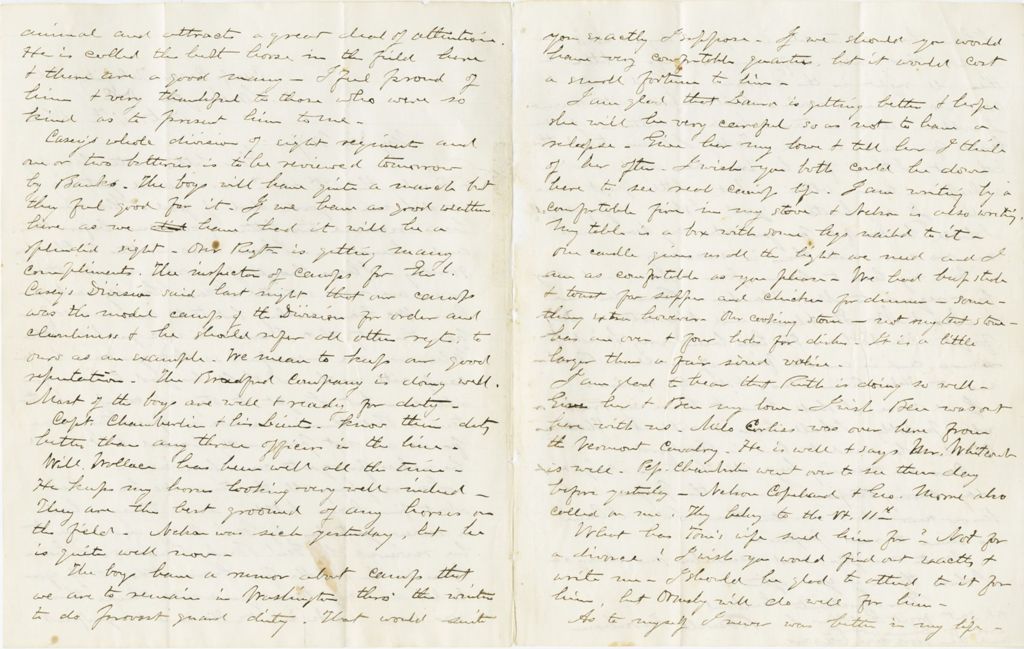 animal and attracts a great deal of attention.
He is called the best horse in the field here
& there are a good many - I feel proud of
him & very thankful to those who were so
kind as to present him to me -
Casey's whole division of eight regiments and
one or two batteries is to be reviewed tomorrow
by Banks. The boys will have quite a march but
they feel good for it. If we have as good weather
here as we have had it will be a
splendid sight - Our Regt. is getting many
compliments. The inspector of camps for Gen'l.
Casey's Division said last night that our camp
was the model camp of the Division for order and
cleanliness & he should refer all other regts. to
ours as an example. We mean to keep our good
reputation. The Bradford Company is doing well.
Most of the boys are well & ready for duty -
Capt. Chamberlin & his Lieuts. know their duty
better than any three officers in the line -
Will Wallace has been well all the time -
He keeps my horse looking very well indeed -
They are the best groomed of any horses on
the field - Nelson was sick yesterday, but he
is quite well now -
The boys have a rumor about camp that
we are to remain in Washington thro' the winter
to do provost guard duty. That would suit
you exactly I suppose - If we should you would
have very comfortable quarters, but it would cost
a small fortune to live -
I am glad that Laura is getting better & hope
she will be very careful so as not to have a
relapse - Give her my love & tell her I think
of her often. I wish you both could be down
here to see real camp life. I am writing by a
comfortable fire in my stove & Nelson is also writing.
My table is a box with some legs nailed to it -
One candle gives us all the light we need and I
am as comfortable as you please - We had beef steak
& toast for supper and chicken for dinner - some-
thing extra however. Our cooking stove - not my tent stove -
has an oven & four holes for dishes - It is a little
larger than a fair sized valise.
I am glad to hear that Ruth is doing so well -
Give her & Ben my love - I wish Ben was out
here with us. Milo Corliss was over here from
the Vermont Cavalry. He is well & says Mr. Whitcomb
is well. Pep. Chamberlin went over to see them day
before yesterday - Nelson Copeland & Geo. Morse also
called on me. They belong to the Vt. 11th
What has Tom's wife sued him for? Not for
a divorce! I wish you would find out exactly &
write me - I should be glad to attend to it for
him, but Ormsby will do well for him -
As to myself I never was better in my life -